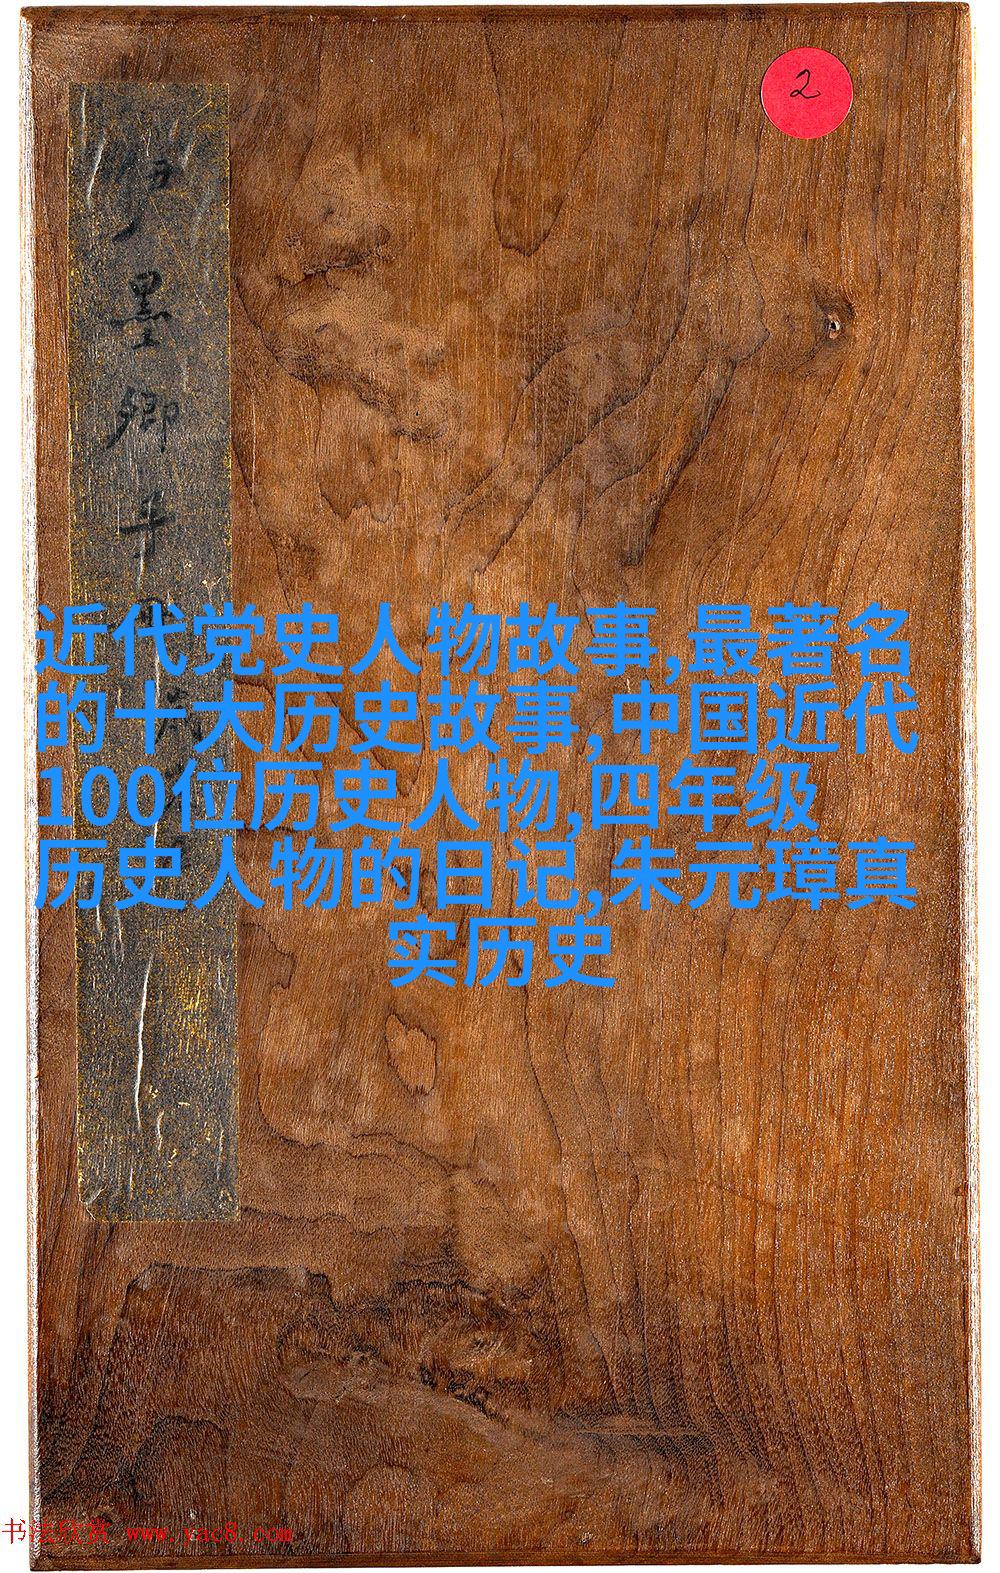 2
墨卿
近代党史人物故事,最著名
的十大历史故事,中国近代
100位历史人物,四年级
历史人物的日记,朱元璋真
实历史
书法欣赏 www.yac8.com